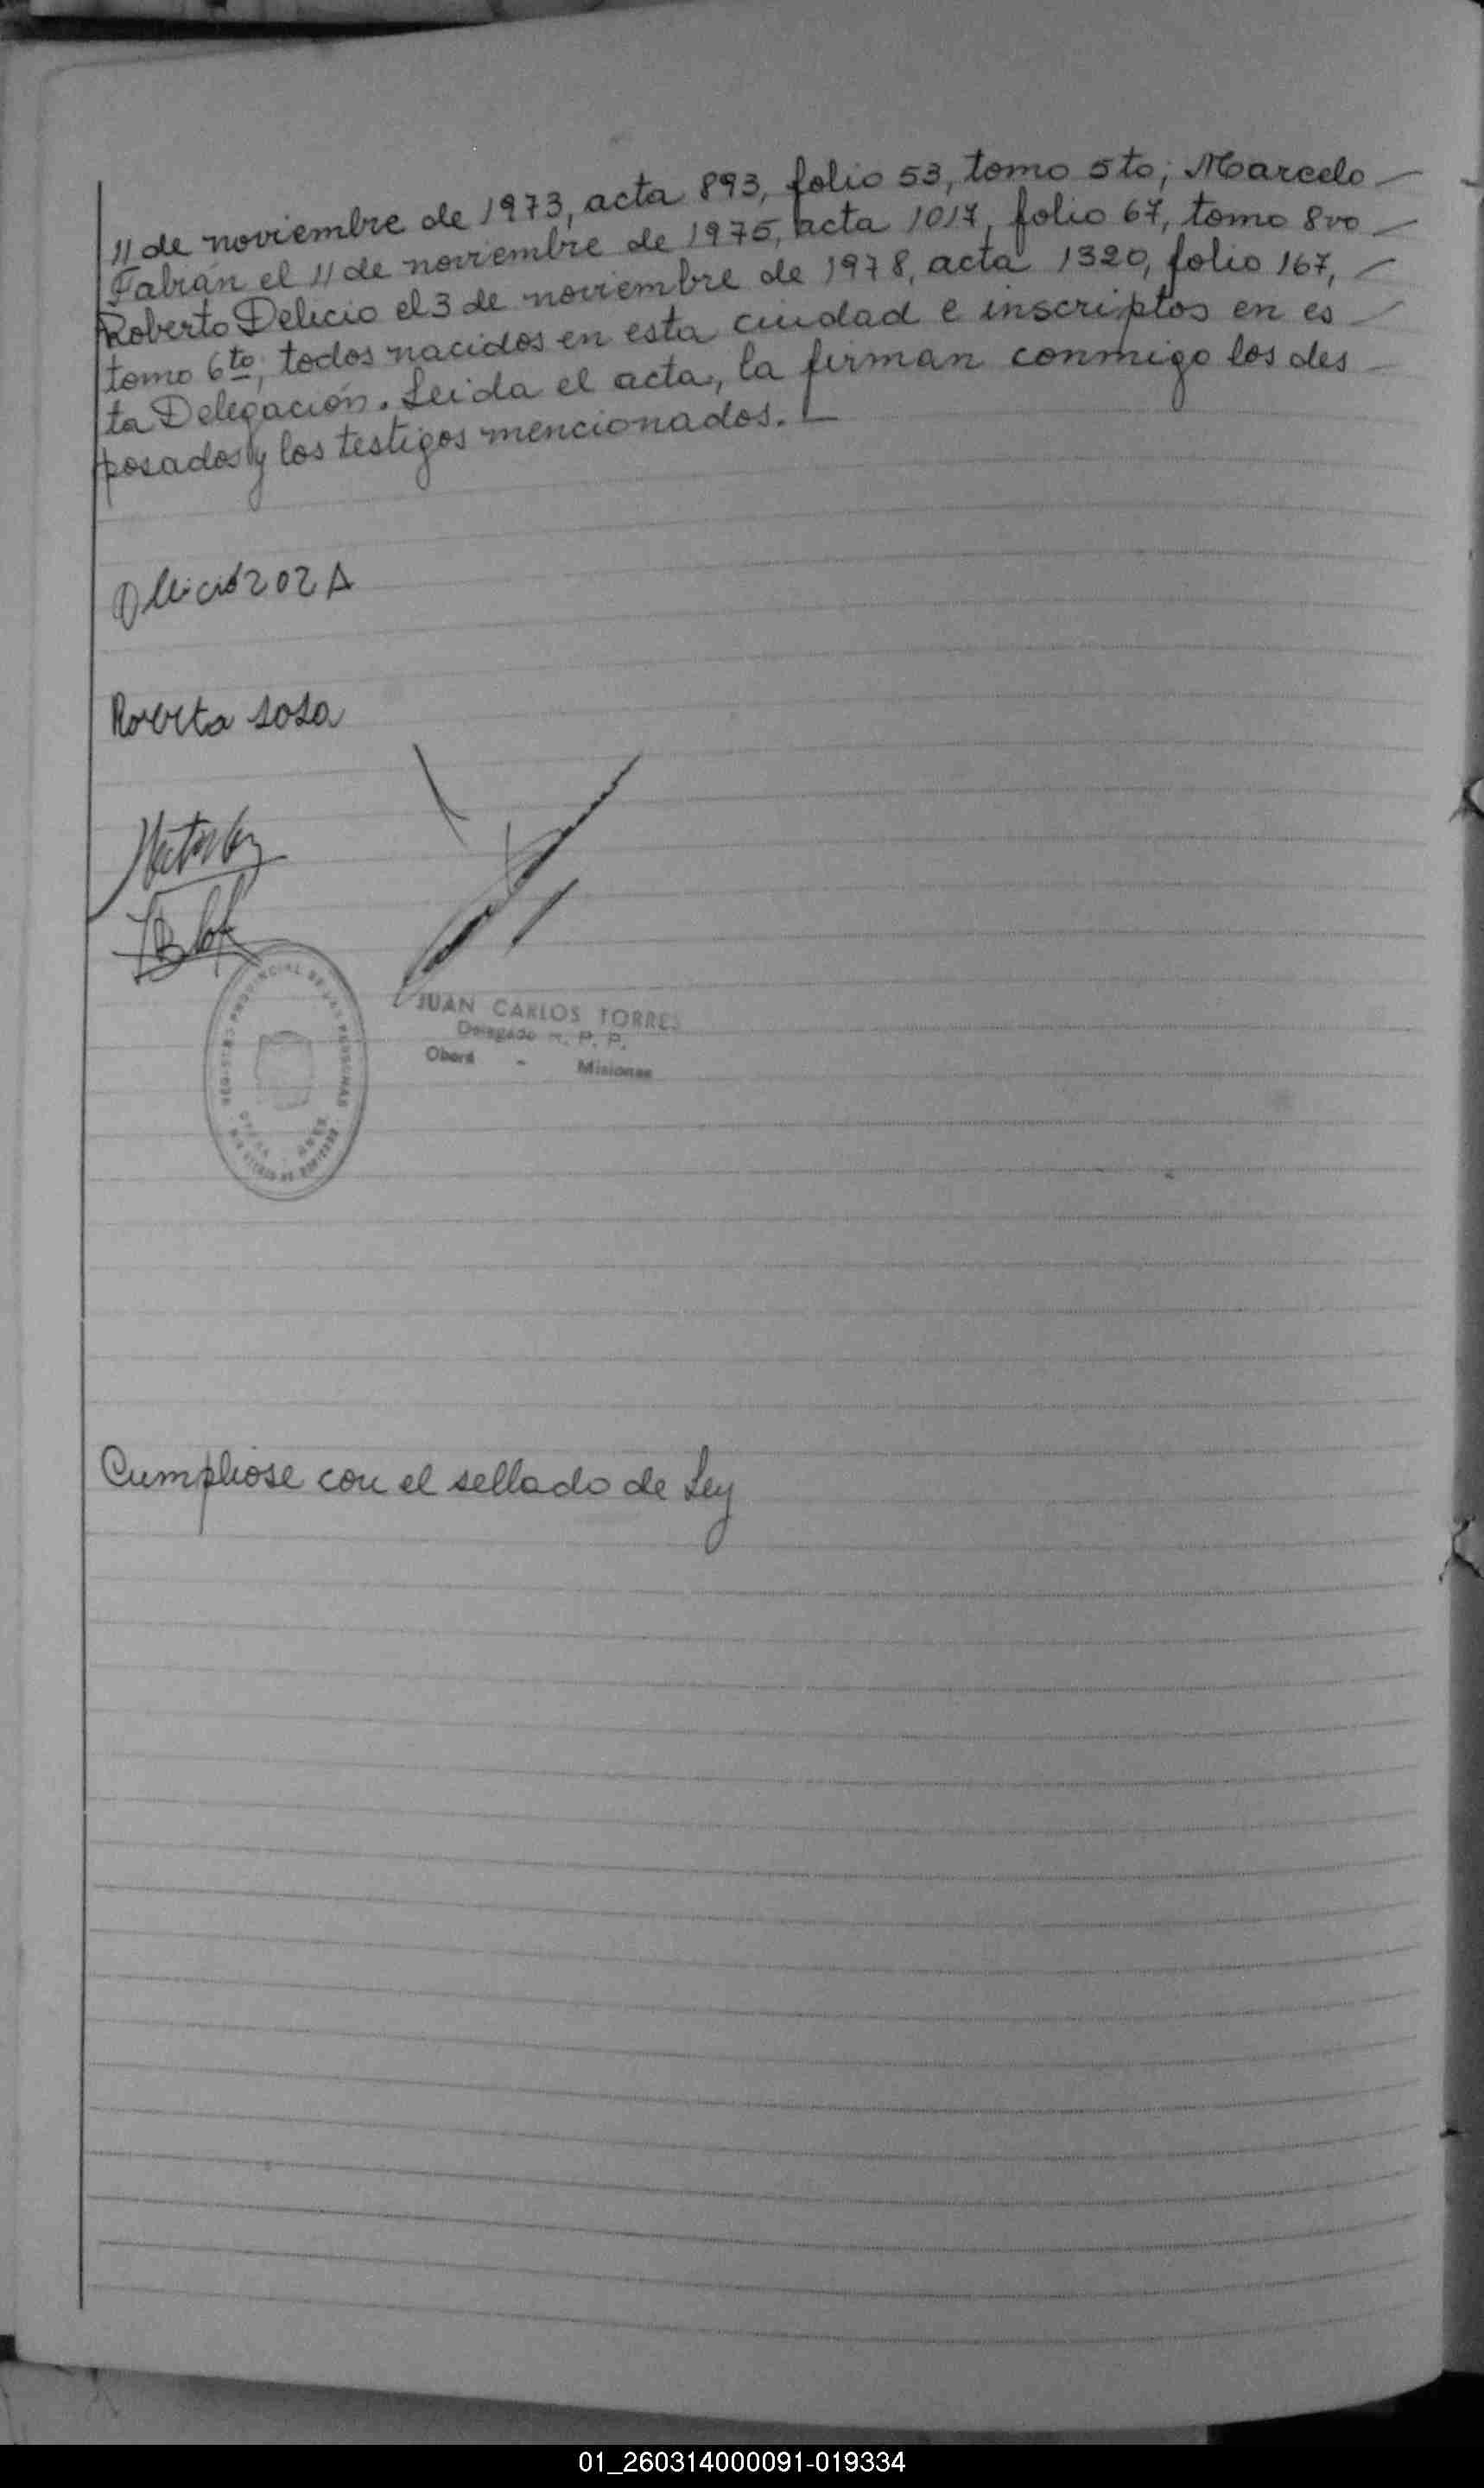 11 de noviembre de 1973, acta 893, folio 53, tomo 5to; Marcelo
Fabián el 11 de noviembre de 1975, acta 1017, folio 67, tomo 8vo
Roberto Delicio el 3 de noviembre de 1978, acta 1320, folio 167,
tomo 6to; todos nacidos en esta ciudad e inscriptos en es
ta Delegación. Leida el acta, la firman conmigo los des
posados y los testigos mencionados.
Roberta sosa
JUAN CARLOS TORRES
Delegado R. P. P.
Oberá - Misiones
PROVINCIAL DE LAS PERSONAS
Cumpliose con el sellado de Ley
01_260314000091-019334